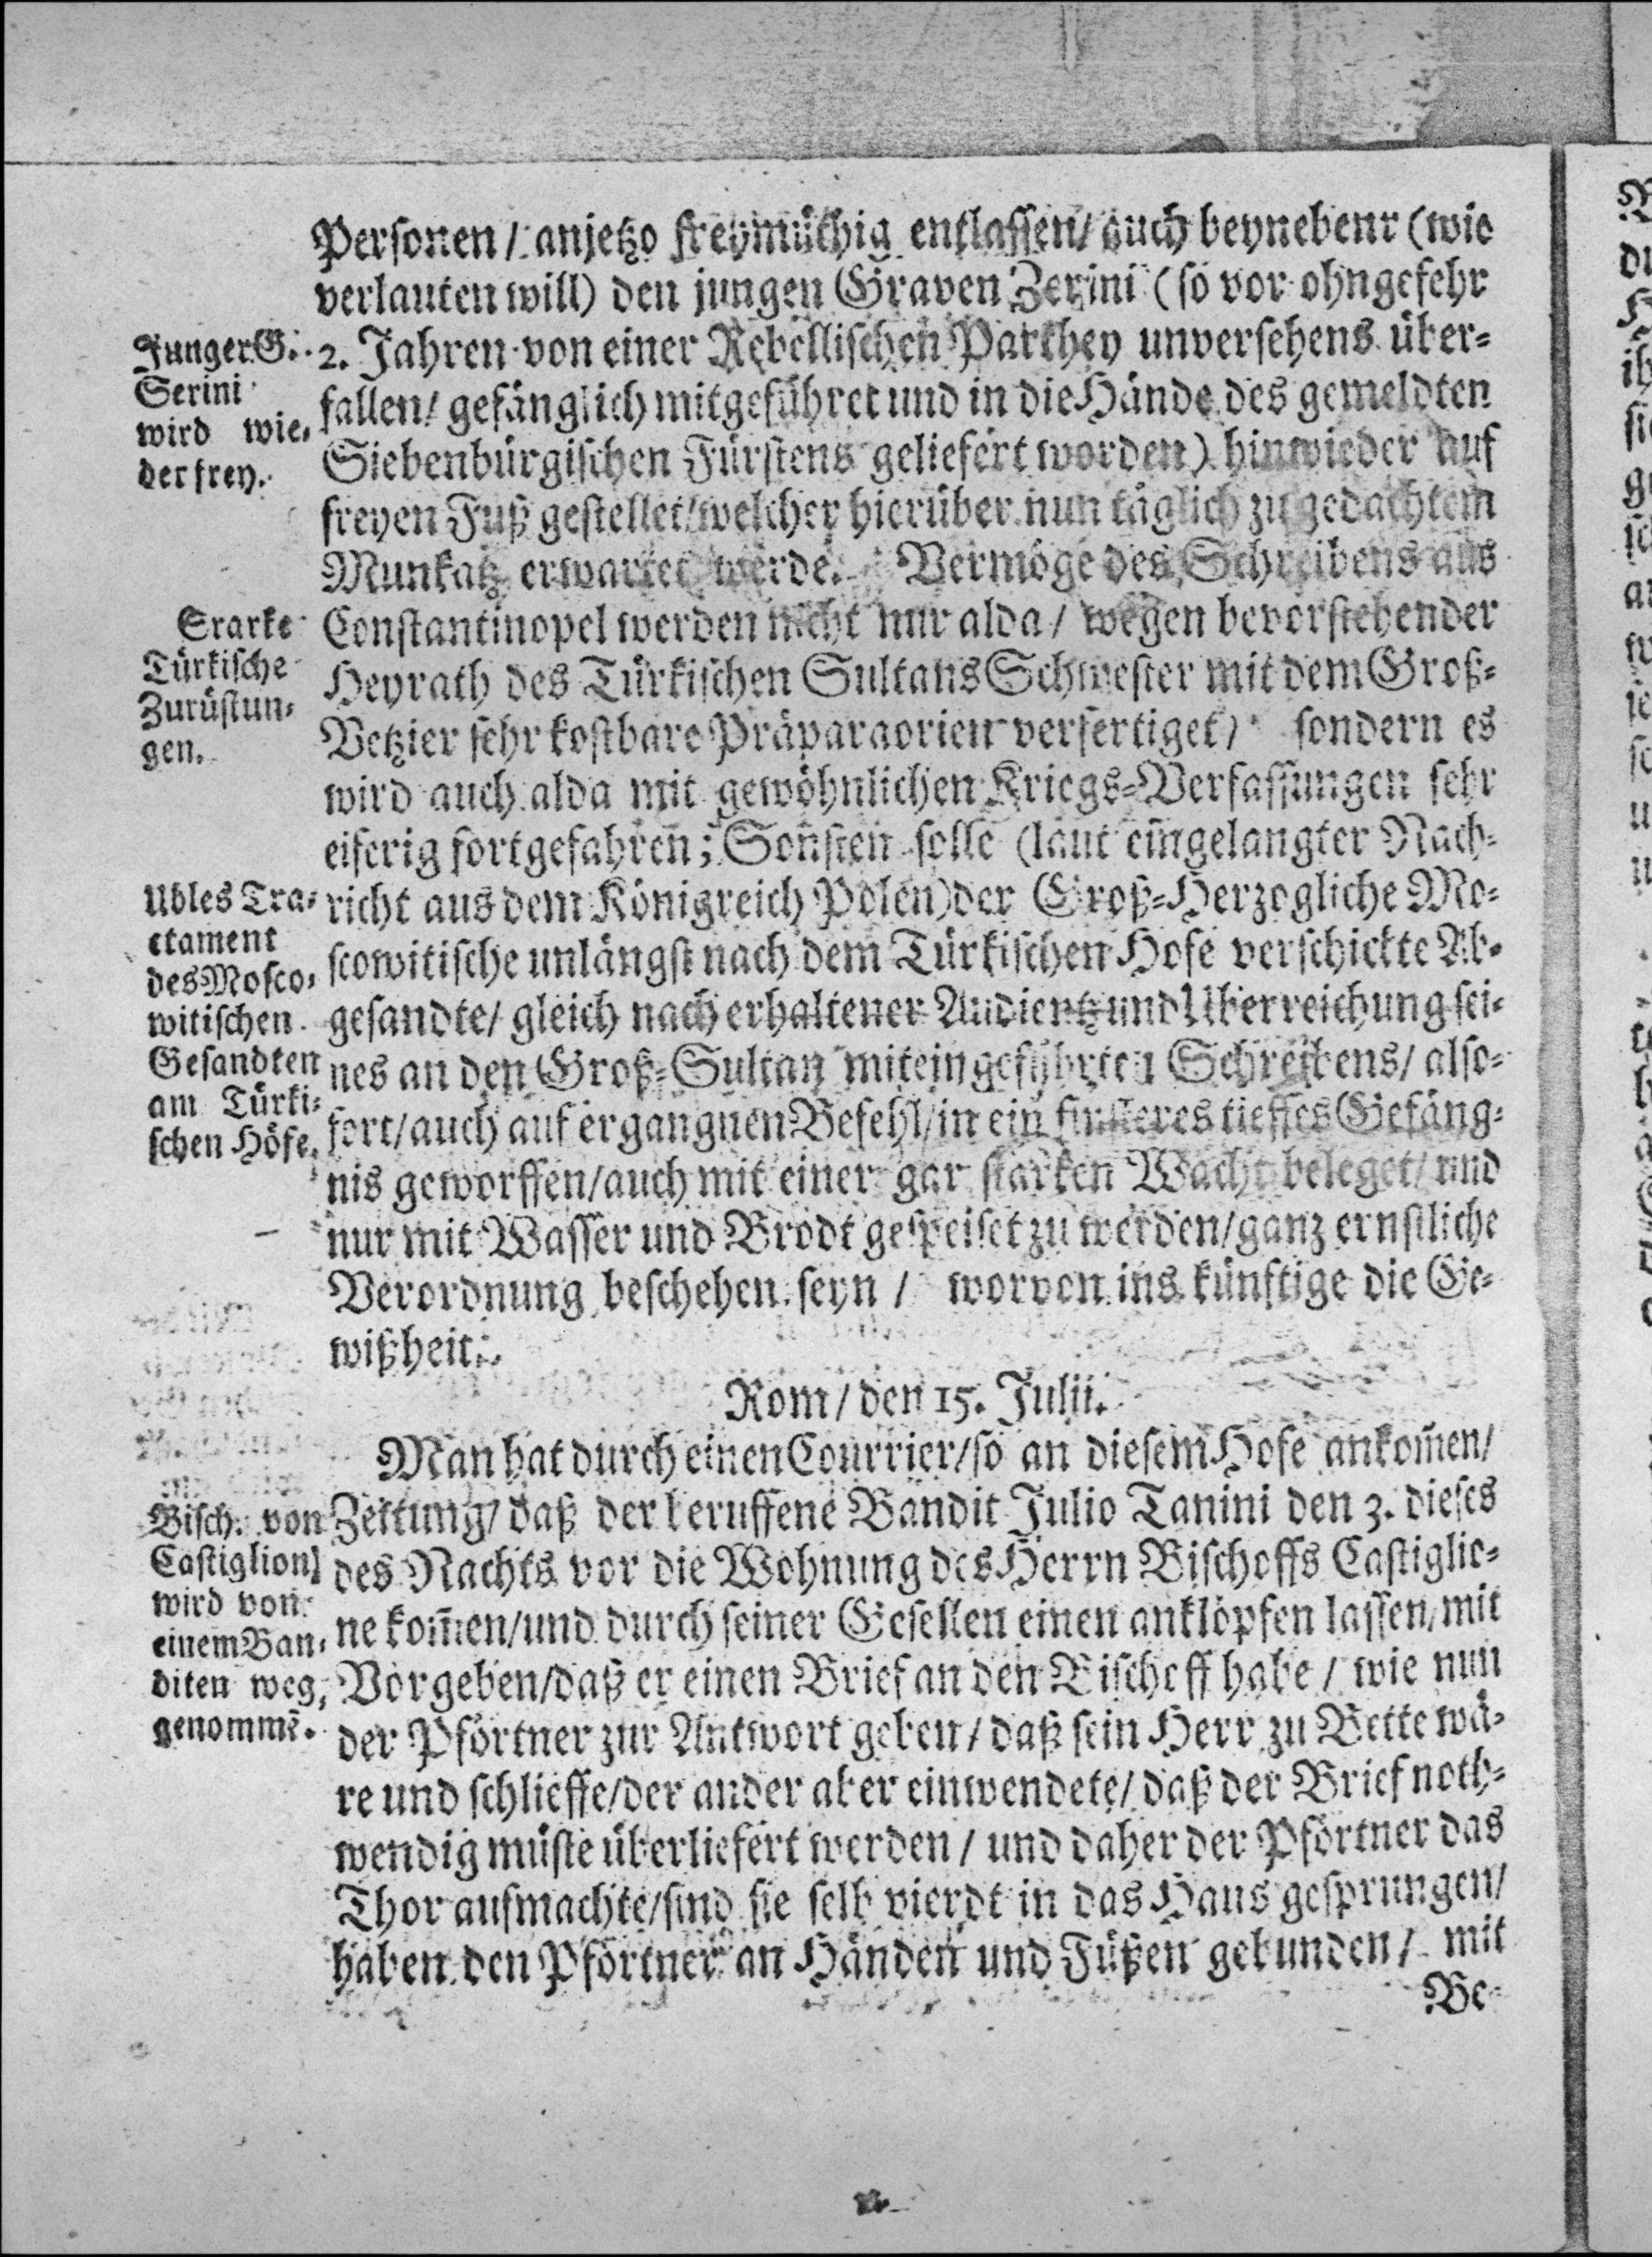 Personen / anjetzo freymüthig entlassen / auch beynebenr (wie
verlauten will) den jungen Graven Zerini (so vor ohngefehr
2. Jahren von einer Rebellischen Parthey unversehens über-
fallen / gefänglich mitgeführet und in die Hände des gemeldten
Siebenbürgischen Fürstens geliefert worden) hinwieder auf
freyen Fuß gestellet / welcher hierüber nun täglich zu gedachtem
Munkatz erwartet werde. Vermöge des Schreibens aus
Constantinopel werden nicht nur alda / wegen bevorstehender
Heyrath des Türkischen Sultans Schwester mit dem Groß-
Vetzier sehr kostbare Präparaorien verfertiget / sondern es
wird auch alda mit gewöhnlichen Kriegs-Verfassungen sehr
eiferig fortgefahren; Sonsten solle (laut eingelangter Nach-
richt aus dem Königreich Polen) der Groß-Herzogliche Mo-
scowitische unlängst nach dem Türkischen Hofe verschickte Ab-
gesandte / gleich nach erhaltener Audientz und Uberreichung sei-
nes an den Groß-Sultan miteingeführten Schreibens / also-
fort / auch auf ergangnen Befehl / in ein finsteres tieffes Gefäng-
nis geworffen / auch mit einer gar starken Wacht beleget / und
nur mit Wasser und Brodt gespeiset zu werden / ganz ernstliche
Verordnung beschehen seyn / worvon ins künftige die Ge-
wißheit.
Junger G.
Serini
wird wie-
der frey.
Srarke
Türkische
Zurüstun-
gen.
Ubles Tra-
ctament
des Mosco-
witischen
Gesandten
am Türki-
schen Höfe.
Rom / den 15. Julii.
Man hat durch einen Courrier / so an diesem Hofe ankom̃en /
Zeitung / daß der beruffene Bandit Julio Tanini den 3. dieses
des Nachts vor die Wohnung des Herrn Bischoffs Castiglio-
ne kom̃en / und durch seiner Gesellen einen anklopfen lassen / mit
Vorgeben / daß er einen Brief an den Bischoff habe / wie nun
der Pförtner zur Antwort geben / daß sein Herr zu Bette wä-
re und schlieffe / der ander aber einwendete / daß der Brief noth-
wendig müste überliefert werden / und daher der Pförtner das
Thor aufmachte / sind sie selb vierdt in das Haus gesprungen /
haben den Pförtner an Händen und Füßen gebunden / mit
Be-
Bisch. von
Castiglion
wird von
einem Ban-
diten weg-
genommẽ.